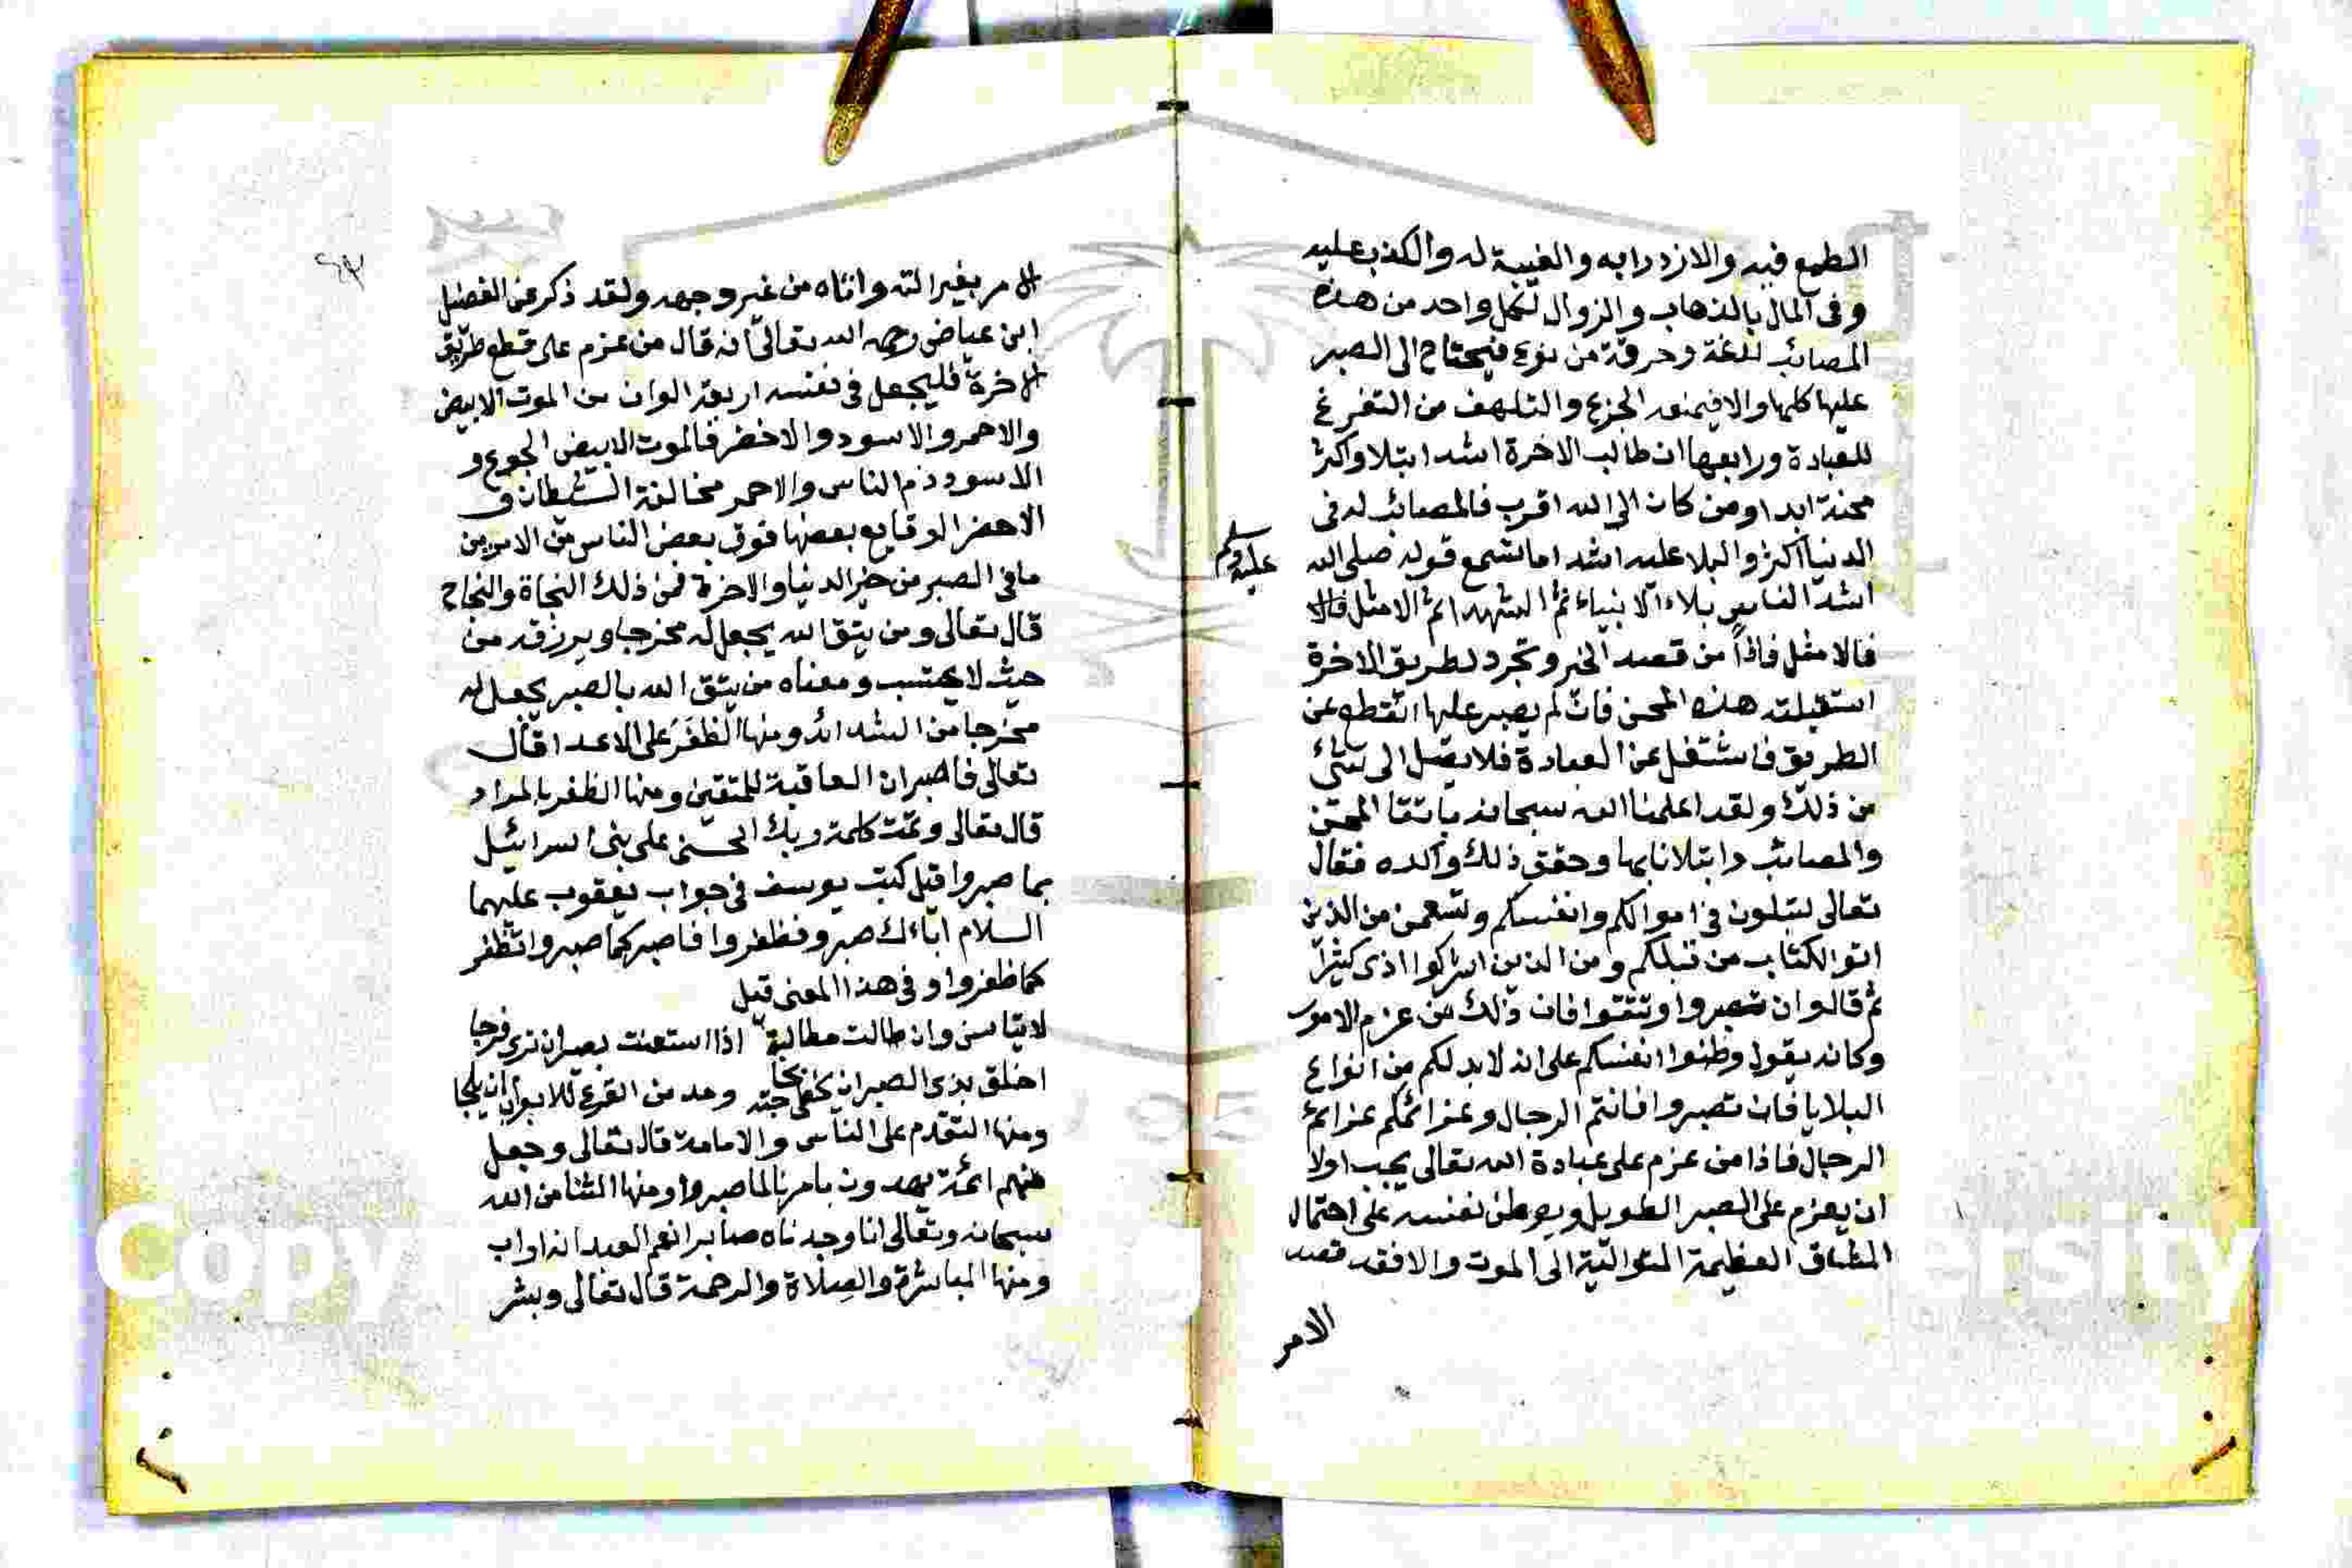 الطمع فيه والازدرابه والغيبة له والكذب عليه
وفى المال بالذهاب والزوال لكل واحد من هذه
المصائب لذعة وحرقة من نوع فيحتاج الى الصبر
عليها كلها والا فيمنعه الجزع والتلهف من التفرغ
للعبادة ورابعها ان طالب الاخرة اشد ابتلا واكثر
محنة ابدا ومن كان الى الله اقرب فالمصائب له فى
الدنيا اكثر والبلا عليه اشد اما تسمع قوله صلى الله
عليه وسلم
اشد الناس بلاء الانبياء ثم الشهدا ثم الامثل فالا
فالامثل فاذاً من قصد الخير وتجرد لطريق الاخرة
استقبلته هذه المحن فان لم يصبر عليها انقطع عن
الطريق فاشتغل عن العبادة فلا يصل الى شئ
من ذلك ولقد اعلمنا الله سبحانه المحن
والمصائب وابتلانا بها وحقق ذلك واكده فقال
تعالى لتبلون فى اموالكم وانفسكم ولتسمعن من الذين
اتوا الكتاب من قبلكم ومن الذين اشركوا اذى كثيراً
ثم قال وان تصبروا وتتقوا فان ذلك من عزم الامور
وكانه يقول وطنوا انفسكم على انه لا بد لكم من انواع
البلايا فان تصبروا فانتم الرجال وعزائمكم عزائم
الرجال فاذا من عزم على عبادة الله تعالى يجب اولا
ان يعزم على الصبر الطويل ويوطن نفسه على احتمال
المشاق العظيمة المتوالية الى الموت والا فقد قصد
الامر
الامر بغير الته واتاه من غير وجهه ولقد ذكر عن الفضيل
ابن عياض رحمه الله تعالى انه قال من عزم على قطع طريق
الاخرة فليجعل فى نفسه اربعة الوان من الموت الابيض
والاحمر والاسود والاخضر فالموت الابيض الجوع و
الاسود ذم الناس والاحمر مخالفة الشيطان و
الاخضر الوقايع بعضها فوق بعض الناس من الامور من
ما فى الصبر من خير الدنيا والاخرة فمن ذلك النجاة والنجاح
قال تعالى ومن يتق الله يجعل له مخرجا ويرزقه من
حيث لا يحتسب ومعناه من يتق الله بالصبر يجعل له
مخرجا من الشدائد ومنها الظفر على الاعدا قال
تعالى فاصبر ان العاقبة للمتقين ومنها الظفر بالمراد
قال تعالى وتمت كلمة ربك الحسنى على بنى اسرائيل
بما صبروا قيل كتب يوسف فى جواب يعقوب عليهما
السلام اباءك صبروا فظفروا فاصبر كما صبروا تظفر
كما ظفروا وفى هذا المعنى قيل
لا تيأسن وان طالت مطالبة اذا استعنت بصبر ان ترى فرجا
اخلق بذى الصبر ان يحظى بحاجته ومد من القرع للابواب ان يلجا
ومنها التقدم على الناس والامامة قال تعالى وجعل
منهم ائمة يهدون بامرنا لما صبروا ومنها الثنا من الله
سبحانه وتعالى انا وجدناه صابرا نعم العبد انه اواب
ومنها المباشرة والصلاة والرحمة قال تعالى وبشر